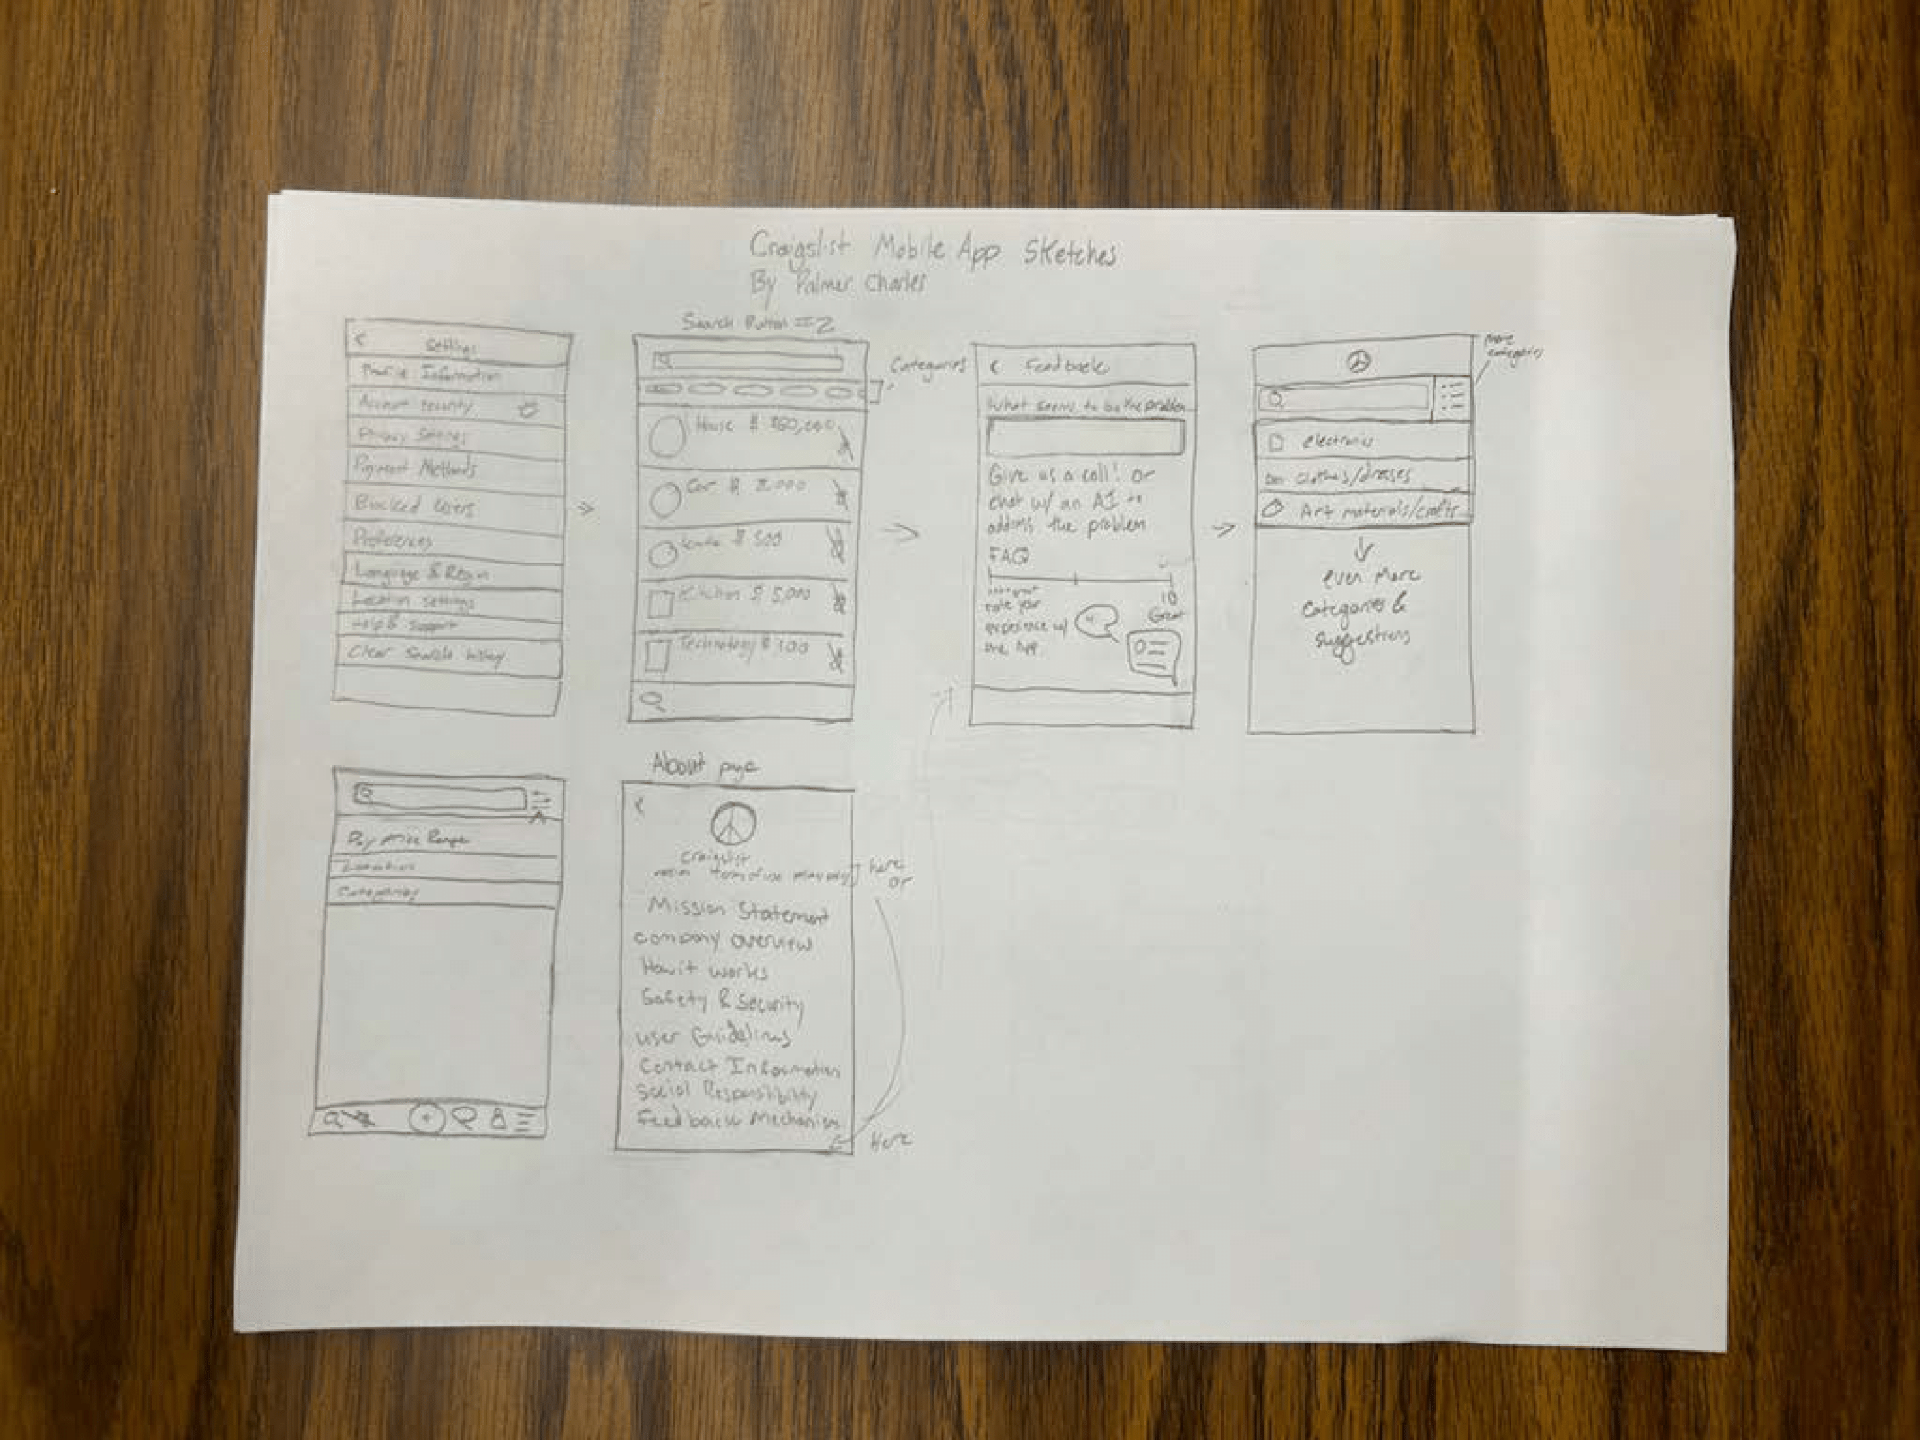 Craigslist Mobile App Sketches
By Palmer Charles
Settings
Profile Information
Account security
Privacy Settings
Payment Methods
Blocked Users
Preferences
Language & Region
Location settings
Help & Support
Clear Search history
Search Button #2
Categories
House $
Car $
$ 500
Kitchen $ 5,000
Technology $ 100
< Feedback
What seems to be the problem
Give us a call! Or
chat w/ an AI to
address the problem
FAQ
10
Great
rate your
experience w/
the App
More
categories
electronics
clothes/dresses
Art materials/crafts
even More
Categories &
suggestions
By Price Range
Location
Categories
About page
Craigslist
terms of use
here
or
Mission Statement
company overview
How it works
Safety & Security
user Guidelines
Contact Information
Social Responsibility
Feedback Mechanism
Here